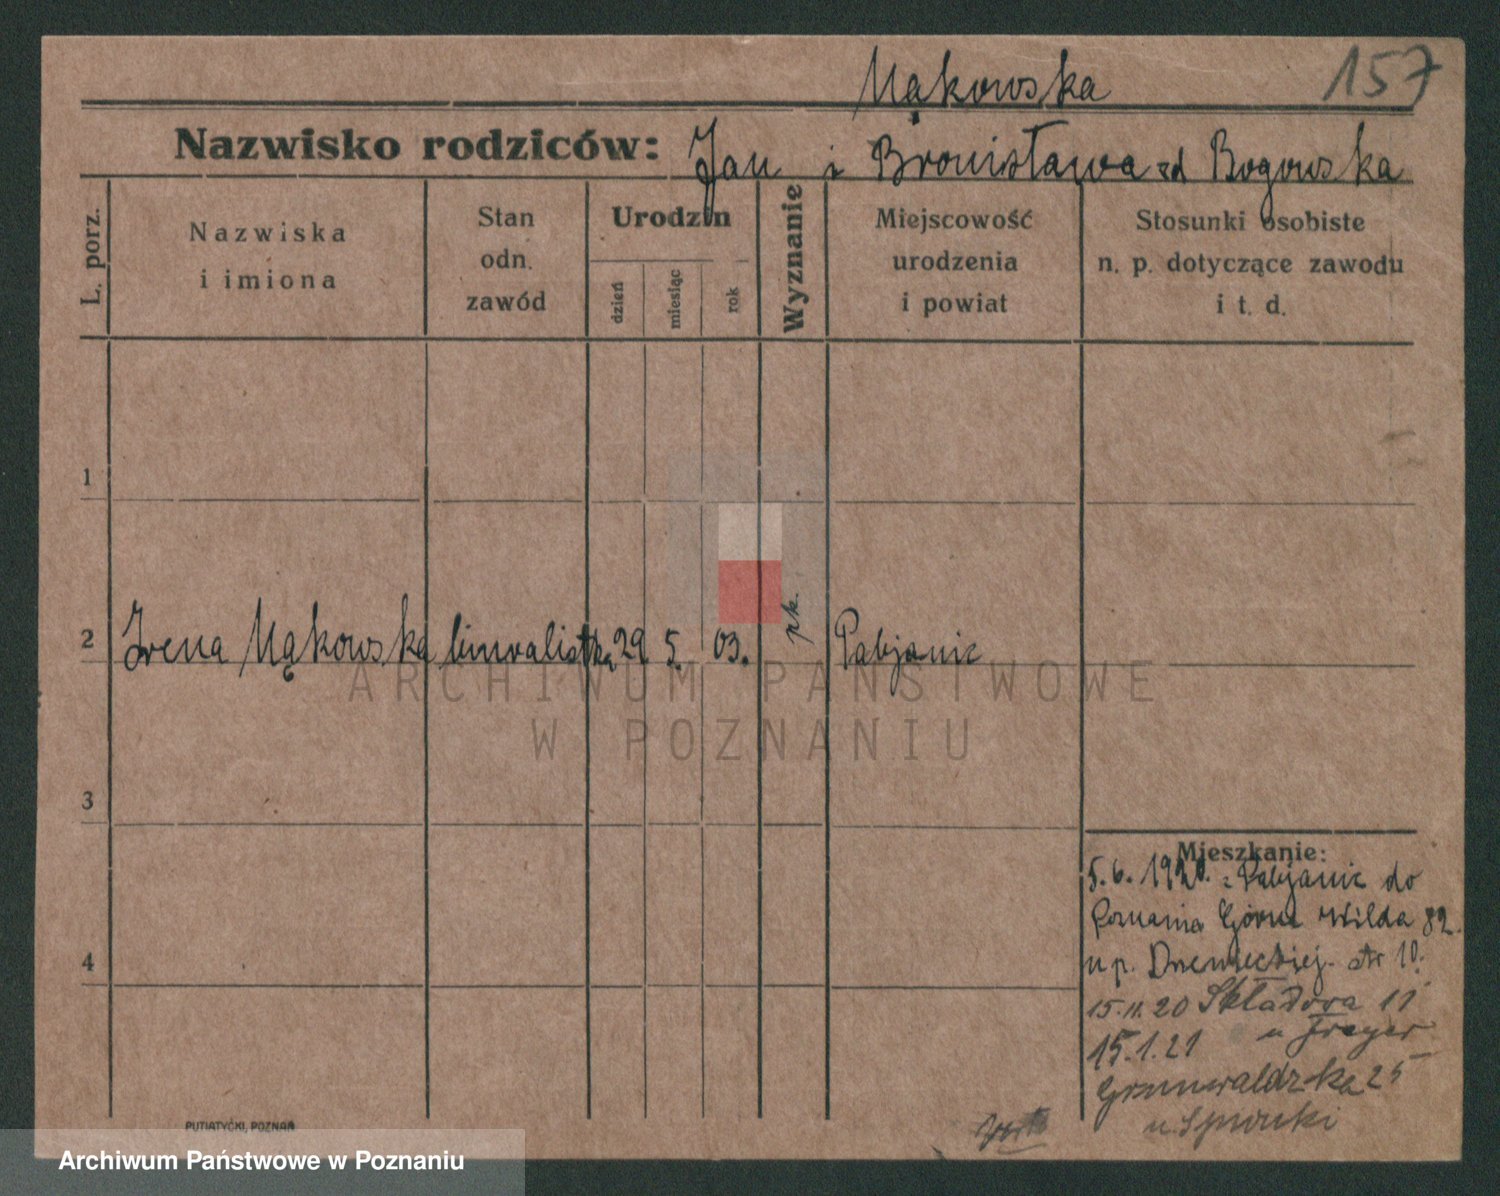 Mąkowska 157
Nazwisko rodziców: Jan i Bronisława zd Bogowska
L. porz.
Nazwiska
i imiona
Stan
odn.
zawód
Urodzin
dzień
miesiąc
rok
Wyznanie
Miejscowość
urodzenia
i powiat
Stosunki osobiste
n. p. dotyczące zawodu
i t. d.
1
2 Irena Mąkowska 29 5. 03. Pabjanic
3
4
ARCHIWUM PAŃSTWOWE
W POZNANIU
Mieszkanie:
5.6.1920. z Pabjanic do
Poznania Górna Wilda 82.
u p. str 10.
15.11.20 Składowa 11
15.1.21 u Freyer
Grunwaldzka 25
PUTIATYCKI, POZNAŃ
Archiwum Państwowe w Poznaniu